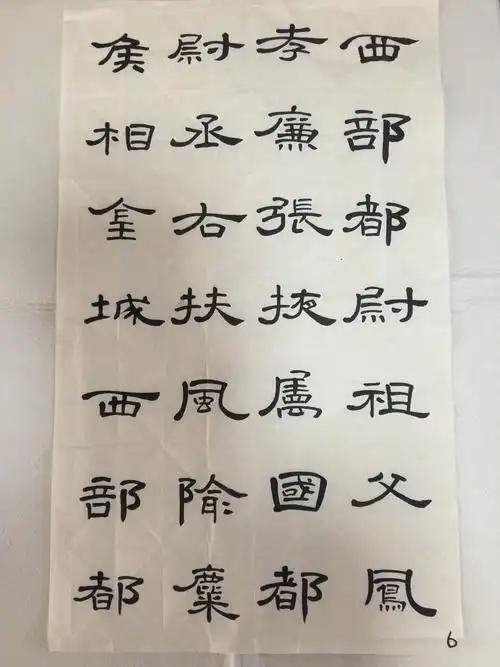 西部都尉祖父鳳
孝廉張掖屬國都
尉丞右扶風隃麋
侯相金城西部都
6